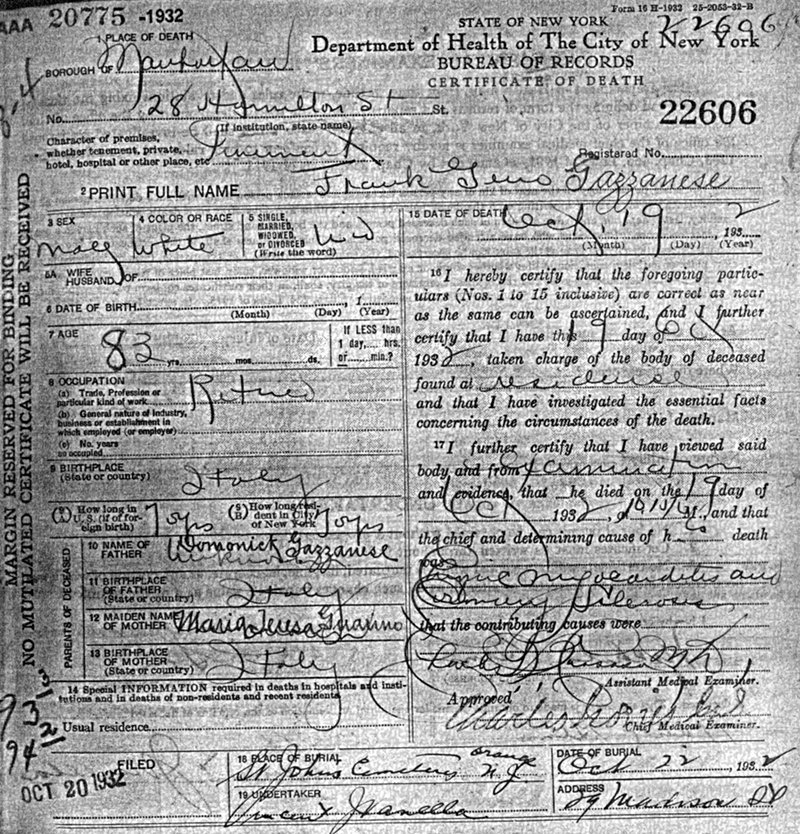 AAA 20775 -1932
Form 16 H-1932 25-2053-32-B
22606
STATE OF NEW YORK
Department of Health of The City of New York
BUREAU OF RECORDS
CERTIFICATE OF DEATH
22606
Registered No.
1 PLACE OF DEATH
BOROUGH OF Manhattan
No. 28 Hamilton St St.
(If institution, state name)
Character of premises,
whether tenement, private,
hotel, hospital or other place, etc Tenement
2 PRINT FULL NAME Frank Geno Gazzanese
MARGIN RESERVED FOR BINDING
NO MUTILATED CERTIFICATE WILL BE RECEIVED
3 SEX
Male
4 COLOR OR RACE
White
5 SINGLE,
MARRIED,
WIDOWED,
or DIVORCED
(Write the word)
Wid
5A WIFE
HUSBAND OF
6 DATE OF BIRTH , 1
(Month) (Day) (Year)
7 AGE
83 yrs. mos. ds.
If LESS than
1 day, hrs.
or min.?
8 OCCUPATION
(a) Trade, Profession or
particular kind of work Retired
(b) General nature of industry,
business or establishment in
which employed (or employer)
(c) No. years
so occupied
9 BIRTHPLACE
(State or country) Italy
(A) How long in
U. S. (if of for-
eign birth) 70 yrs
(B) How long resi-
dent in City
of New York 70 yrs
PARENTS OF DECEASED
10 NAME OF
FATHER Domonick Gazzanese
11 BIRTHPLACE
OF FATHER
(State or country) Italy
12 MAIDEN NAME
OF MOTHER Maria Teresa Guarino
13 BIRTHPLACE
OF MOTHER
(State or country) Italy
14 Special INFORMATION required in deaths in hospitals and insti-
tutions and in deaths of non-residents and recent residents
Usual residence
15 DATE OF DEATH Oct 19 , 1932
(Month) (Day) (Year)
16 I hereby certify that the foregoing partic-
ulars (Nos. 1 to 15 inclusive) are correct as near
as the same can be ascertained, and I further
certify that I have this 19 day of Oct
1932, taken charge of the body of deceased
found at residence
and that I have investigated the essential facts
concerning the circumstances of the death.
17 I further certify that I have viewed said
body and from examination
and evidence, that he died on the 19 day of
Oct 1932, at M., and that
the chief and determining cause of his death
was
myocarditis and
Coronary Sclerosis
that the contributing causes were
Assistant Medical Examiner.
Approved Charles Norris
Chief Medical Examiner.
FILED
OCT 20 1932
18 PLACE OF BURIAL
St Johns Cemetery Orange N. J.
DATE OF BURIAL
Oct 22 , 1932
19 UNDERTAKER
Vincent Ivanella
ADDRESS
29 Madison St